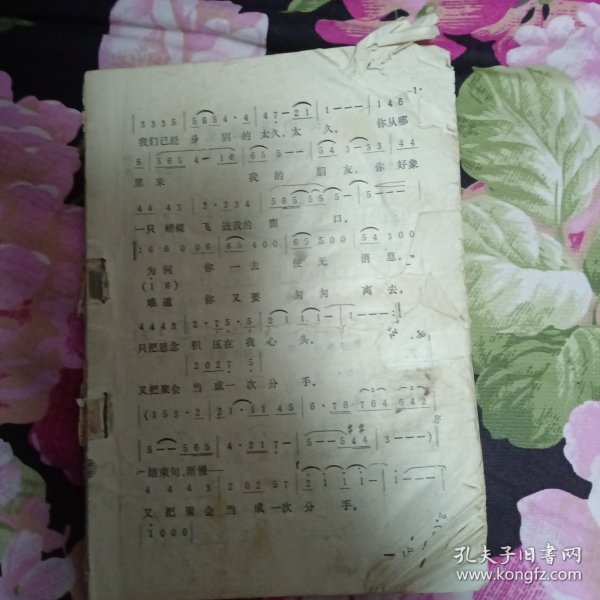 3 3 3 5 | 5 6 5 4 · 4 | 4 7 · — 2 1 | 1 — — — | 1 4 6 · 1 ·
我们已经 分 别 的 太久, 太 久。 你从哪
5 | 5 6 5 4 — 1 6 | 6 5 5 — — | 5 4 3 — 3 3 | 4 4
里来 我 的 朋 友, 你 好象
4 4 4 3 | 2 · 2 3 4 | 5 6 5 5 5 5 — | 5 — — —
一只 蝴蝶 飞 进我的 窗 口,
6 6 0 0 6 | 6 5 4 0 0 | 6 5 5 0 0 | 5 4 3 0 0
为何 你 一 去 便 无 消 息,
(1 6)
难道 你 又 要 匆 匆 离 去,
4 4 4 3 | 2 · 7 5 · 5 | 2 1 1 1 — | 1 — — — :‖
只把思念 积 压在 我 心 头。
| 2 0 2 7 5 |
又把聚会 当 成 一 次 分 手。
(3 5 3 · 2 | 2 1 · 1 1 4 5 | 6 · 7 6 7 6 4 6 4 2
5 — — 5 6 5 | 4 · 2 1 7 — | 5 — — 5 4 4 | 3 — — —)
结束句,渐慢
4 4 4 3 | 2 0 2 5 7 | 2 1 1 1 1 — | 1 — — —
又 把 聚 会 当 成 一次 分 手。
| 1 0 0 0 |
孔夫子旧书网
www.kongfz.com